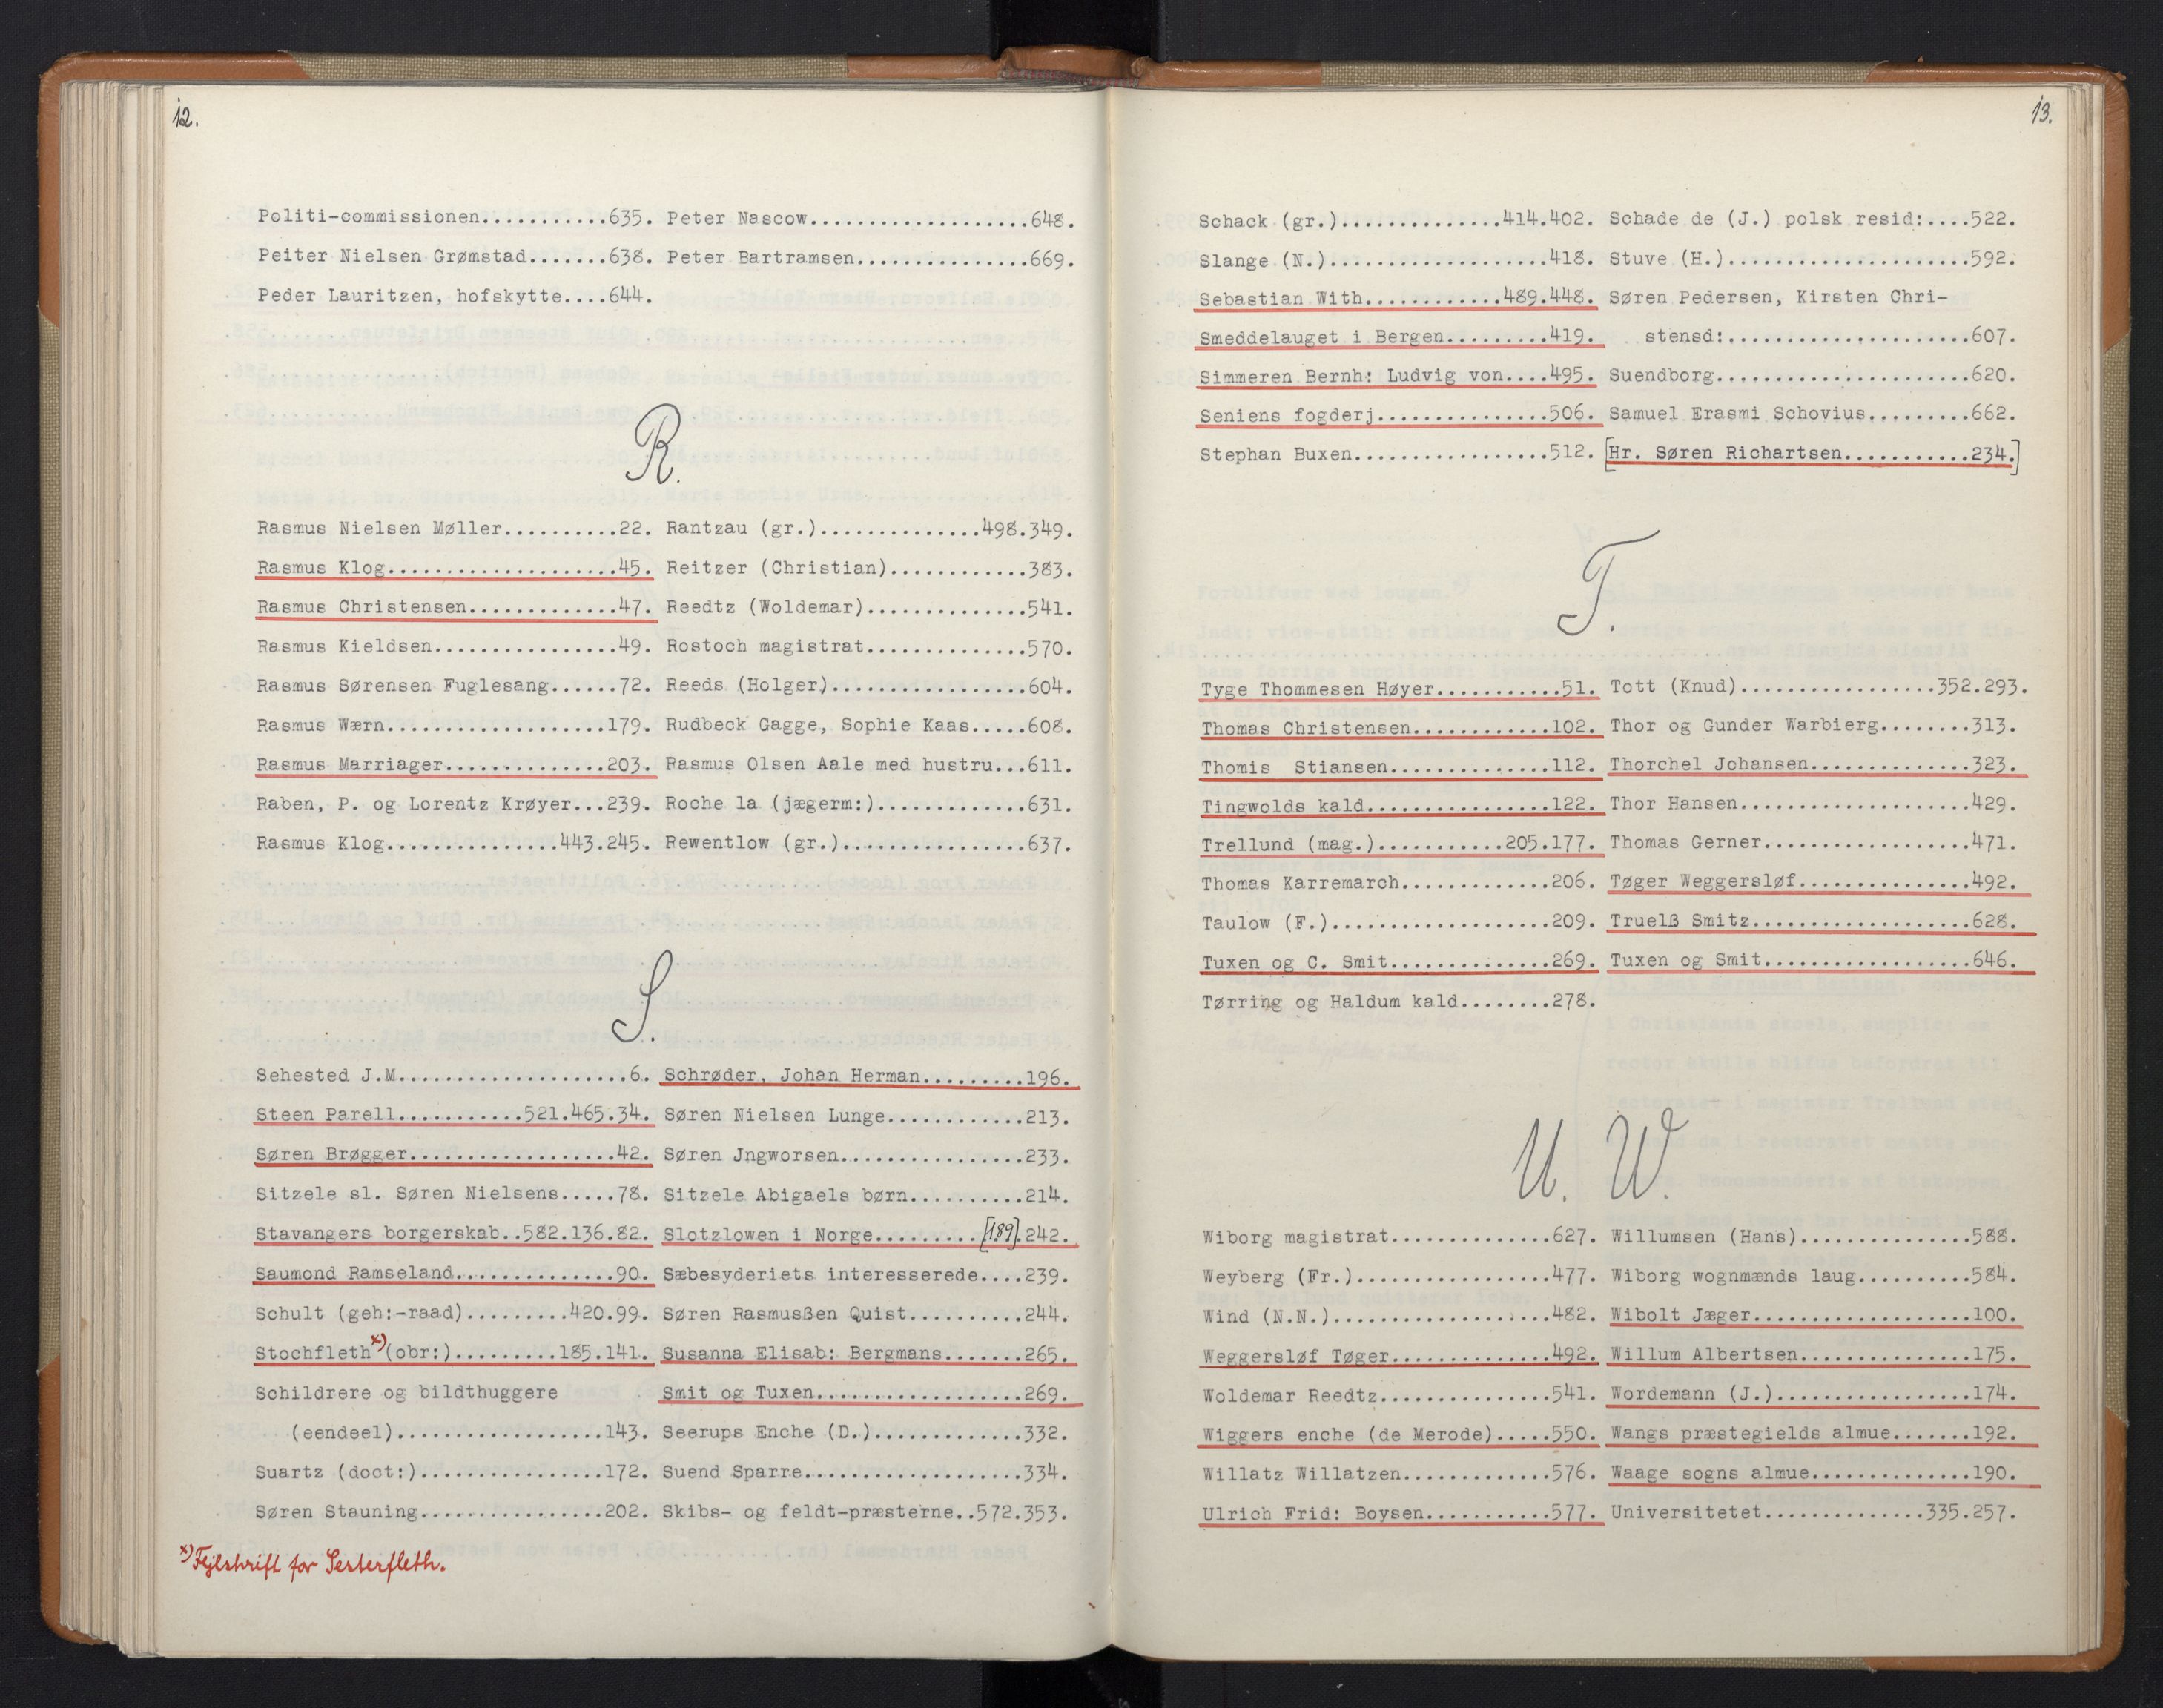 12.
Politi-commissionen...........635.
Peiter Nielsen Grømstad.......638.
Peder Lauritzen, hofskytte....644.
Peter Nascow...................648.
Peter Bartramsen...............669.
R.
Rasmus Nielsen Møller..........22.
Rasmus Klog....................45.
Rasmus Christensen.............47.
Rasmus Kieldsen................49.
Rasmus Sørensen Fuglesang......72.
Rasmus Wærn...................179.
Rasmus Marriager..............203.
Raben, P. og Lorentz Krøyer...239.
Rasmus Klog...............443.245.
Rantzau (gr.)..............498.349.
Reitzer (Christian)............383.
Reedtz (Woldemar)..............541.
Rostoch magistrat..............570.
Reeds (Holger).................604.
Rudbeck Gagge, Sophie Kaas.....608.
Rasmus Olsen Aale med hustru...611.
Roche la (jægerm:).............631.
Rewentlow (gr.)................637.
S.
Sehested J.M....................6.
Steen Parell...........521.465.34.
Søren Brøgger..................42.
Sitzele sl. Søren Nielsens.....78.
Stavangers borgerskab..582.136.82.
Saumond Ramseland..............90.
Schult (geh:-raad).........420.99.
Stochfleth x) (obr:).........185.141.
Schildrere og bildthuggere
(eendeel)..................143.
Suartz (doct:)................172.
Søren Stauning................202.
Schrøder, Johan Herman.........196.
Søren Nielsen Lunge............213.
Søren Jngworsen................233.
Sitzele Abigaels børn..........214.
Slotzlowen i Norge.........[189].242.
Sæbesyderiets interesserede....239.
Søren Rasmusßen Quist..........244.
Susanna Elisab: Bergmans.......265.
Smit og Tuxen..................269.
Seerups Enche (D.).............332.
Suend Sparre...................334.
Skibs- og feldt-præsterne..572.353.
x) Fejlskrift for Sesterfleth.
13.
Schack (gr.)..............414.402.
Slange (N.)...................418.
Sebastian With............489.448.
Smeddelauget i Bergen.........419.
Simmeren Bernh: Ludvig von....495.
Seniens fogderj...............506.
Stephan Buxen.................512.
Schade de (J.) polsk resid:....522.
Stuve (H.).....................592.
Søren Pedersen, Kirsten Chri-
stensd:.....................607.
Suendborg......................620.
Samuel Erasmi Schovius.........662.
[Hr. Søren Richartsen...........234.]
T.
Tyge Thommesen Høyer...........51.
Thomas Christensen............102.
Thomis Stiansen..............112.
Tingwolds kald................122.
Trellund (mag.)...........205.177.
Thomas Karremarch.............206.
Taulow (F.)...................209.
Tuxen og C. Smit..............269.
Tørring og Haldum kald........278.
Tott (Knud)................352.293.
Thor og Gunder Warbierg........313.
Thorchel Johansen..............323.
Thor Hansen....................429.
Thomas Gerner..................471.
Tøger Weggersløf...............492.
Truelß Smitz...................628.
Tuxen og Smit..................646.
U. W.
Wiborg magistrat..............627.
Weyberg (Fr.).................477.
Wind (N.N.)...................482.
Weggersløf Tøger..............492.
Woldemar Reedtz...............541.
Wiggers enche (de Merode).....550.
Willatz Willatzen.............576.
Ulrich Frid: Boysen...........577.
Willumsen (Hans)...............588.
Wiborg wognmænds laug..........584.
Wibolt Jæger...................100.
Willum Albertsen...............175.
Wordemann (J.).................174.
Wangs præstegields almue.......192.
Waage sogns almue..............190.
Universitetet..............335.257.